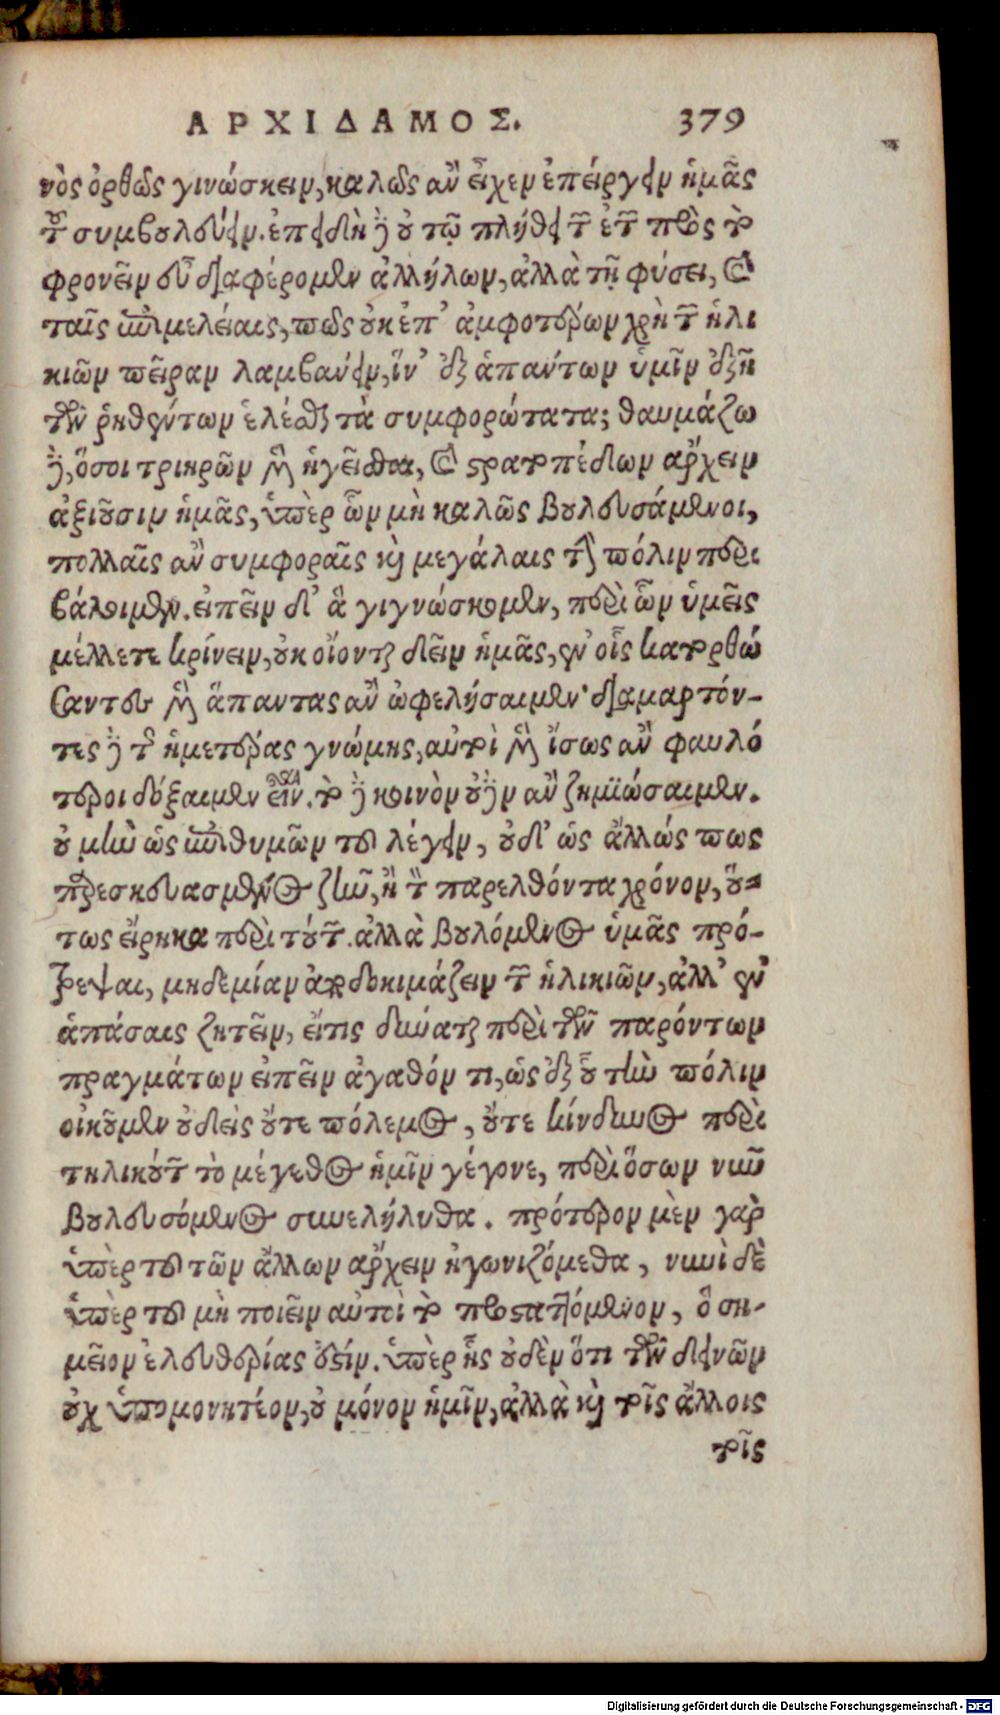 ΑΡΧΙΔΑΜΟΣ. 379
νὸς ὀρθῶς γινώσκειν, καλῶς ἂν εἶχεν ἐπείργειν ἡμᾶς
τοῦ συμβουλεύειν. ἐπειδὴ δὲ οὐ τῷ πλήθει τῶν ἐτῶν πρὸς τὸ
φρονεῖν εὖ διαφέρομεν ἀλλήλων, ἀλλὰ τῇ φύσει, καὶ
ταῖς ἐπιμελείαις, πῶς οὐκ ἐπ' ἀμφοτέρων χρὴ τῶν ἡλι
κιῶν πεῖραν λαμβάνειν, ἵν' ἐξ ἁπάντων ὑμῖν ἐξῇ
τῶν ῥηθέντων ἑλέσθαι τὰ συμφορώτατα; θαυμάζω
δὲ, ὅσοι τριηρῶν μὲν ἡγεῖσθαι, καὶ στρατοπέδων ἄρχειν
ἀξιοῦσιν ἡμᾶς, ὑπὲρ ὧν μὴ καλῶς βουλευσάμενοι,
πολλαῖς ἂν συμφοραῖς καὶ μεγάλαις τὴν πόλιν περι
βάλοιμεν. εἰπεῖν δ' ἃ γιγνώσκομεν, περὶ ὧν ὑμεῖς
μέλλετε κρίνειν, οὐκ οἴονται δεῖν ἡμᾶς, ἐν οἷς κατορθώ
σαντες μὲν ἅπαντας ἂν ὠφελήσαιμεν· διαμαρτόν-
τες δὲ τῆς ἡμετέρας γνώμης, αὐτοὶ μὲν ἴσως ἂν φαυλό
τεροι δόξαιμεν εἶναι. τὸ δὲ κοινὸν οὐδὲν ἂν ζημιώσαιμεν.
οὐ μὴν ὡς ἐπιθυμῶν τοῦ λέγειν, οὐδ' ὡς ἄλλώς πως
παρεσκευασμένος ζῆν, ἢ τὸν παρελθόντα χρόνον, οὕ-
τως εἴρηκα περὶ τούτων. ἀλλὰ βουλόμενος ὑμᾶς προ-
τρέψαι, μηδεμίαν ἀποδοκιμάζειν τῶν ἡλικιῶν, ἀλλ' ἐν
ἁπάσαις ζητεῖν, εἴ τις δύναται περὶ τῶν παρόντων
πραγμάτων εἰπεῖν ἀγαθόν τι, ὡς ἐξ οὗ τὴν πόλιν
οἰκοῦμεν οὐδεὶς οὔτε πόλεμος, οὔτε κίνδυνος περὶ
τηλικούτων τὸ μέγεθος ἡμῖν γέγονε, περὶ ὅσων νῦν
βουλευσόμενος συνελήλυθα. πρότερον μὲν γὰρ
ὑπὲρ τοῦ τῶν ἄλλων ἄρχειν ἠγωνιζόμεθα, νυνὶ δὲ
ὑπὲρ τοῦ μὴ ποιεῖν αὐτοὶ τὸ προσταττόμενον, ὃ ση-
μεῖον ἐλευθερίας ἐστίν. ὑπὲρ ἧς οὐδὲν ὅτι τῶν δεινῶν
οὐχ ὑπομονητέον, οὐ μόνον ἡμῖν, ἀλλὰ καὶ τοῖς ἄλλοις
τοῖς
Digitalisierung gefördert durch die Deutsche Forschungsgemeinschaft - DFG